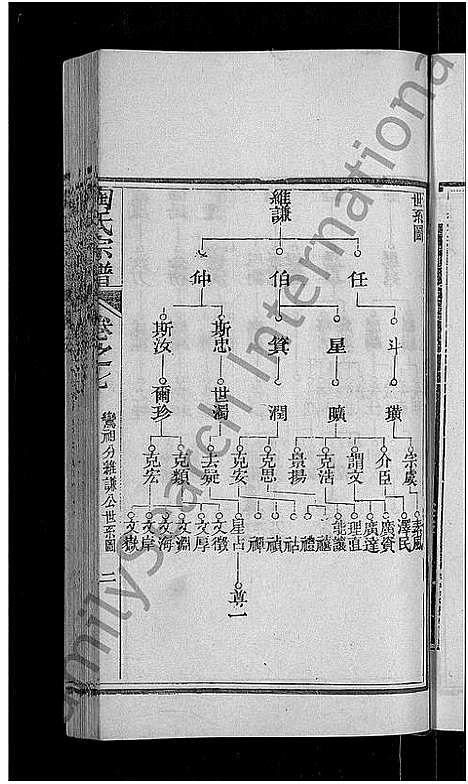 世系圖
維謙
任
伯
仲
斗
星
箕
斯忠
斯汝
璜
曠
潤
世濁
爾珍
宗虞
介臣
謂文
克浩
景揚
克思
克安
去疑
克類
克宏
素風
澤民
廣賓
廣達
理直
能讓
禧
禮
祜
禎
禪
星占
文徵
文厚
文淵
文海
文岸
文嶽
尊一
陶氏宗譜
卷之七
鸞祖分維謙公世系圖
二
FamilySearch International